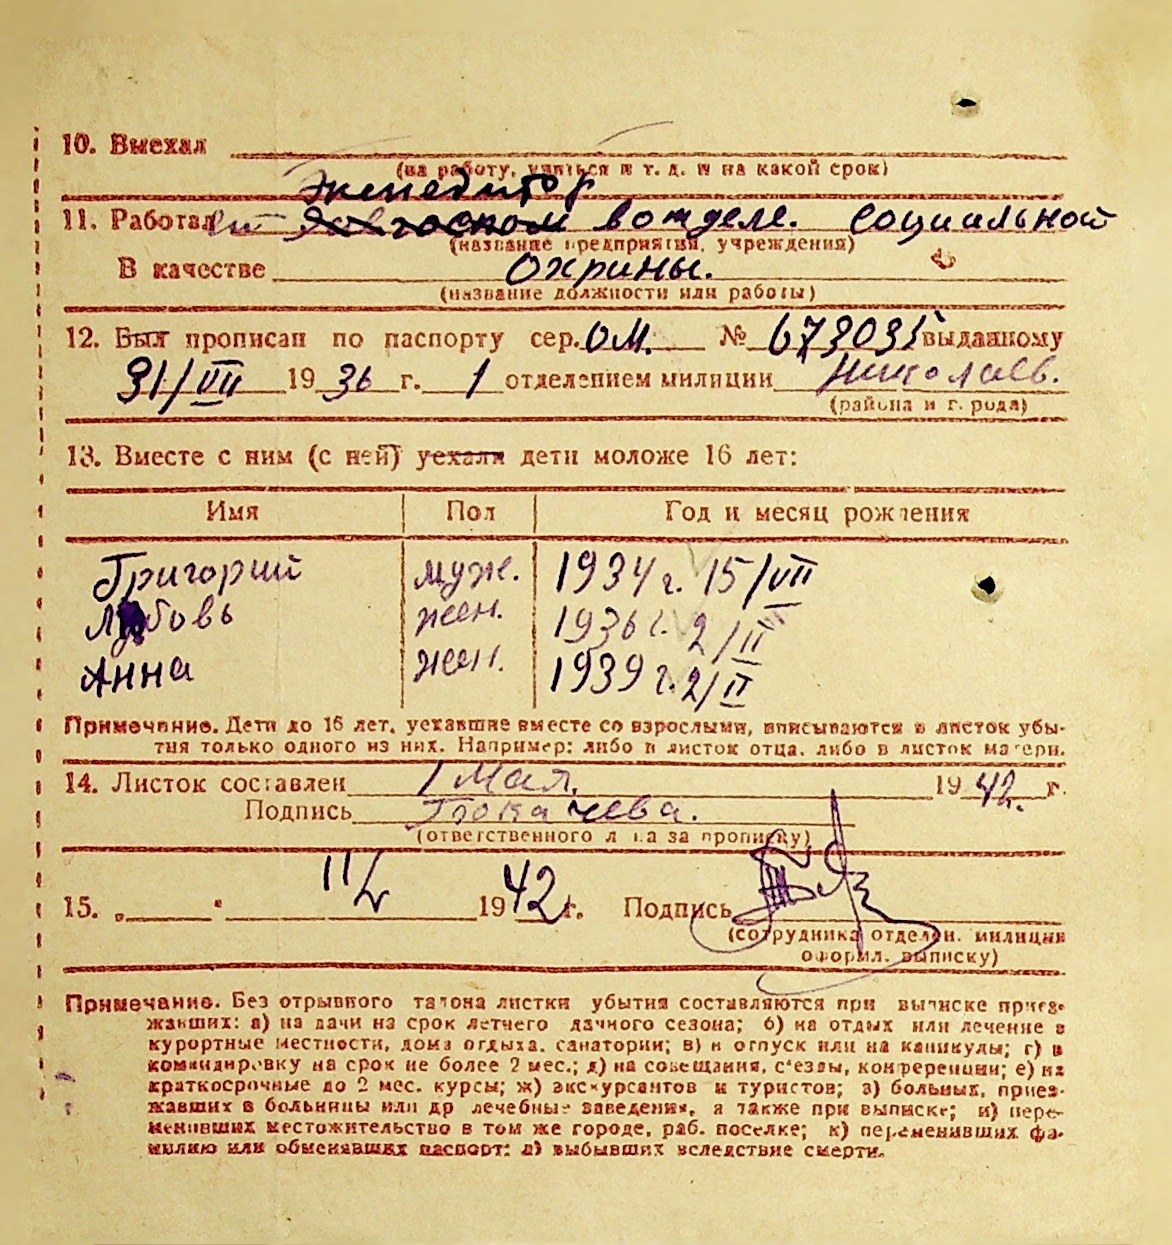 10. Выехал
(на работу, учиться и т. д. и на какой срок)
Экспедитор
11. Работал в отделе. социальной
(название предприятия, учреждения)
В качестве Охрины.
(название должности или работы)
12. Был прописан по паспорту сер. ОМ. № 673035 выданному
31/VII 1936 г. 1 отделением милиции Николаев.
(района и г. рода)
13. Вместе с ним (с ней) уехали дети моложе 16 лет:
Имя Пол Год и месяц рождения
Григорий муж. 1934 г. 15/VII
Любовь жен. 1936 г. 2/II
Анна жен. 1939 г. 2/II
Примечание. Дети до 16 лет, уехавшие вместе со взрослыми, вписываются в листок убы-
тия только одного из них. Например: либо в листок отца, либо в листок матери.
14. Листок составлен 1 Мая. 1942. г.
Подпись
(ответственного лица за прописку)
15. „ “ 1942 г. Подпись
(сотрудника отделен. милиции
оформл. выписку)
Примечание. Без отрывного талона листки убытия составляются при выписке приез-
жавших: а) на дачи на срок летнего дачного сезона; б) на отдых или лечение в
курортные местности, дома отдыха, санатории; в) в отпуск или на каникулы; г) в
командировку на срок не более 2 мес.; д) на совещания, с'езды, конференции; е) на
краткосрочные до 2 мес. курсы; ж) экскурсантов и туристов; з) больных, приез-
жавших в больницы или др лечебные заведения, а также при выписке; и) пере-
менивших местожительство в том же городе, раб. поселке; к) переменивших фа-
милию или обменявших паспорт; л) выбывших вследствие смерти.